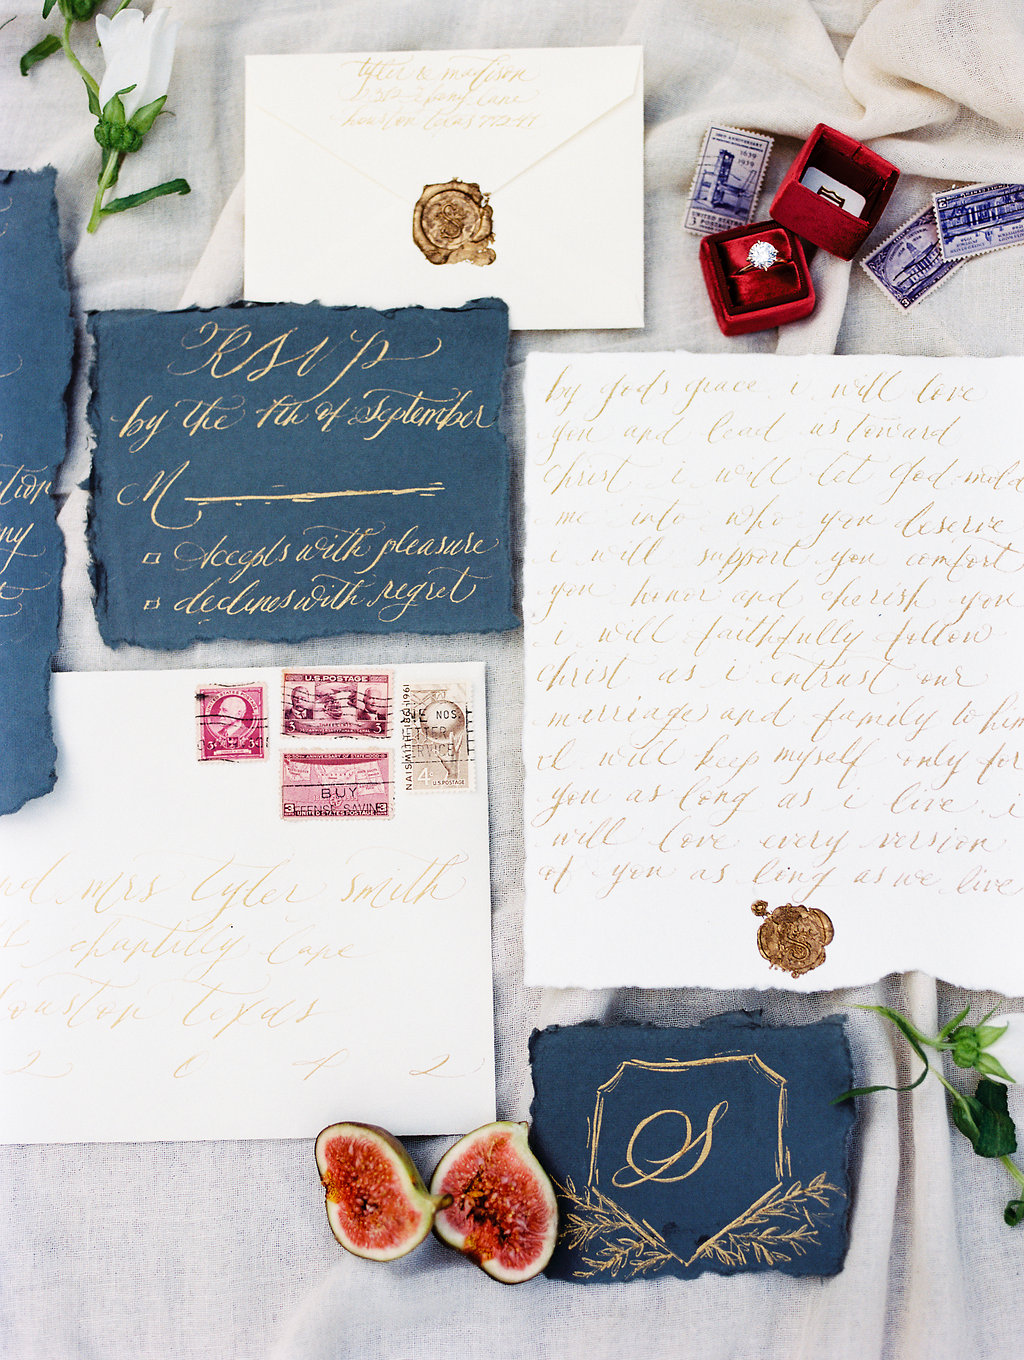 tyler & madison
Lane
houston texas
S
100TH ANNIVERSARY
1639
1939
UNITED STATES
3
RSVP
by the 7th of September
M
accepts with pleasure
declines with regret
by gods grace i will love
you and lead us toward
christ i will let God mold
me into who you deserve
i will support you comfort
you honor and cherish you
i will faithfully follow
christ as i entrust our
marriage and family to him
I will keep myself only for
you as long as i live i
will love every version
of you as long as we live
S
ny
U.S. POSTAGE
3 3
3¢ 3¢
NAISMITH 1861-1961
4¢ U.S. POSTAGE
BUY
DEFENSE SAVING
3 UNITED STATES POSTAGE 3
nd mrs tyler smith
houston texas
2 0 4 2
S